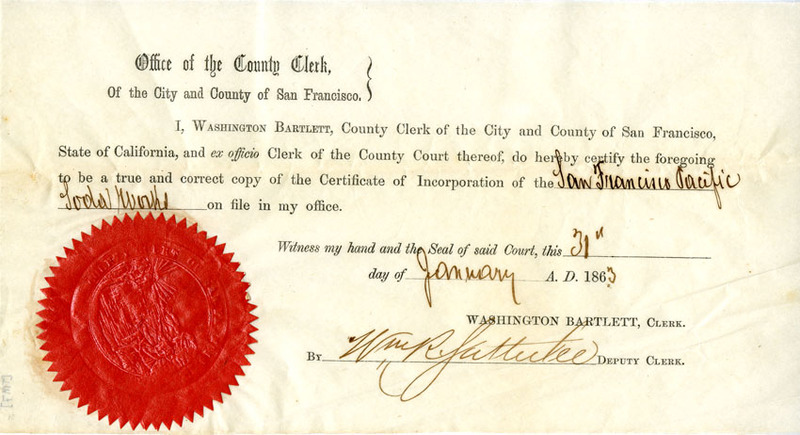 Office of the County Clerk,
Of the City and County of San Francisco.
I, WASHINGTON BARTLETT, County Clerk of the City and County of San Francisco,
State of California, and ex officio Clerk of the County Court thereof, do hereby certify the foregoing
to be a true and correct copy of the Certificate of Incorporation of the San Francisco Pacific
Soda Works on file in my office.
Witness my hand and the Seal of said Court, this 31"
day of January A. D. 1863
WASHINGTON BARTLETT, CLERK.
By Wm R. DEPUTY CLERK.